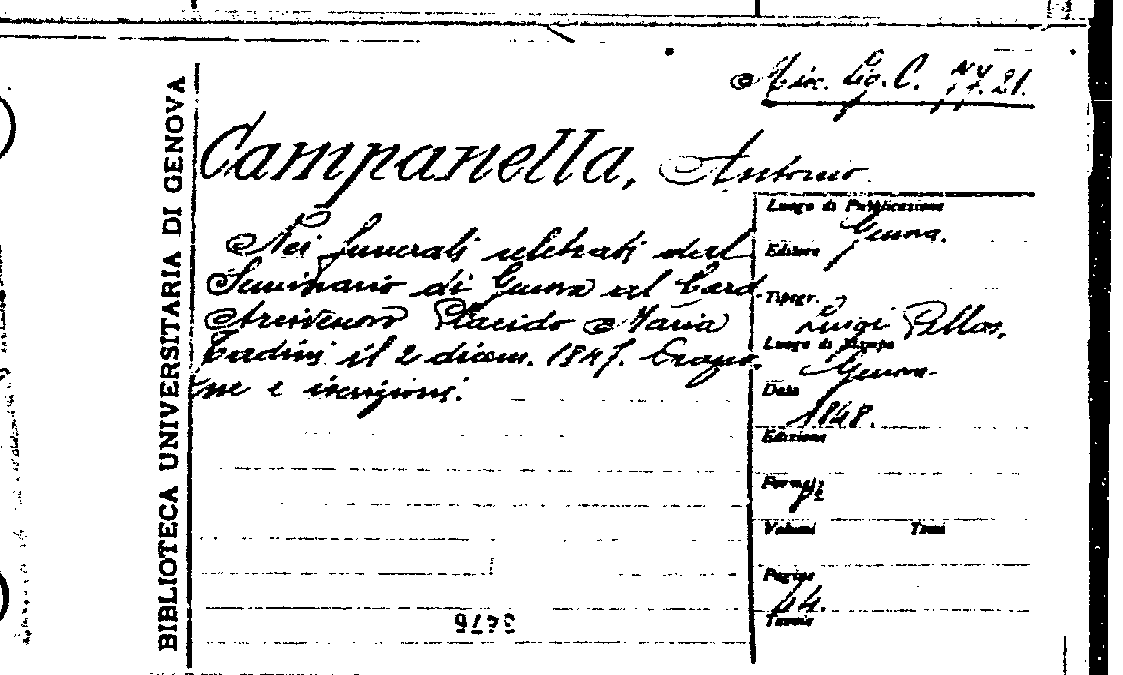 BIBLIOTECA UNIVERSITARIA DI GENOVA
Misc. Lig. C. 21.
Campanella, Antonio
Nei funerali celebrati dal
Seminario di Genova al Card.
Arcivescovo Placido Maria
Tadini il 2 dicem. 1847. Orazio
ne e iscrizioni.
Luogo di Pubblicazione
Genova.
Editore
Tipogr.
Luigi Pellas,
Luogo di Stampa
Genova
Data
1848.
Edizione
Formato
Volumi Tomi
Pagine
44.
Tavole
3476